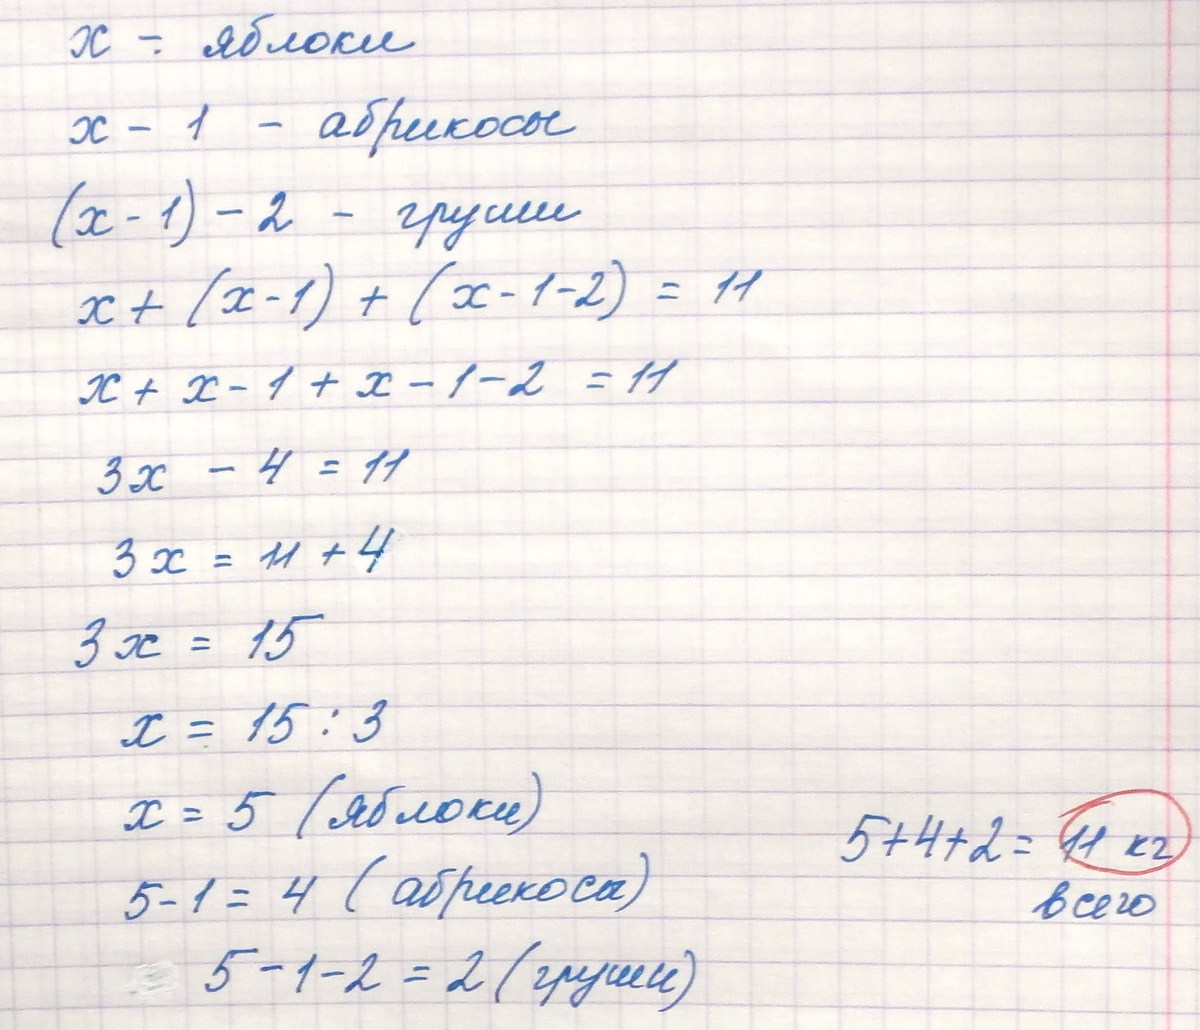 x - яблоки
x - 1 - абрикосы
(x - 1) - 2 - груши
x + (x - 1) + (x - 1 - 2) = 11
x + x - 1 + x - 1 - 2 = 11
3x - 4 = 11
3x = 11 + 4
3x = 15
x = 15 : 3
x = 5 (яблоки)
5 - 1 = 4 (абрикосы)
5 - 1 - 2 = 2 (груши)
5 + 4 + 2 = 11 кг
всего